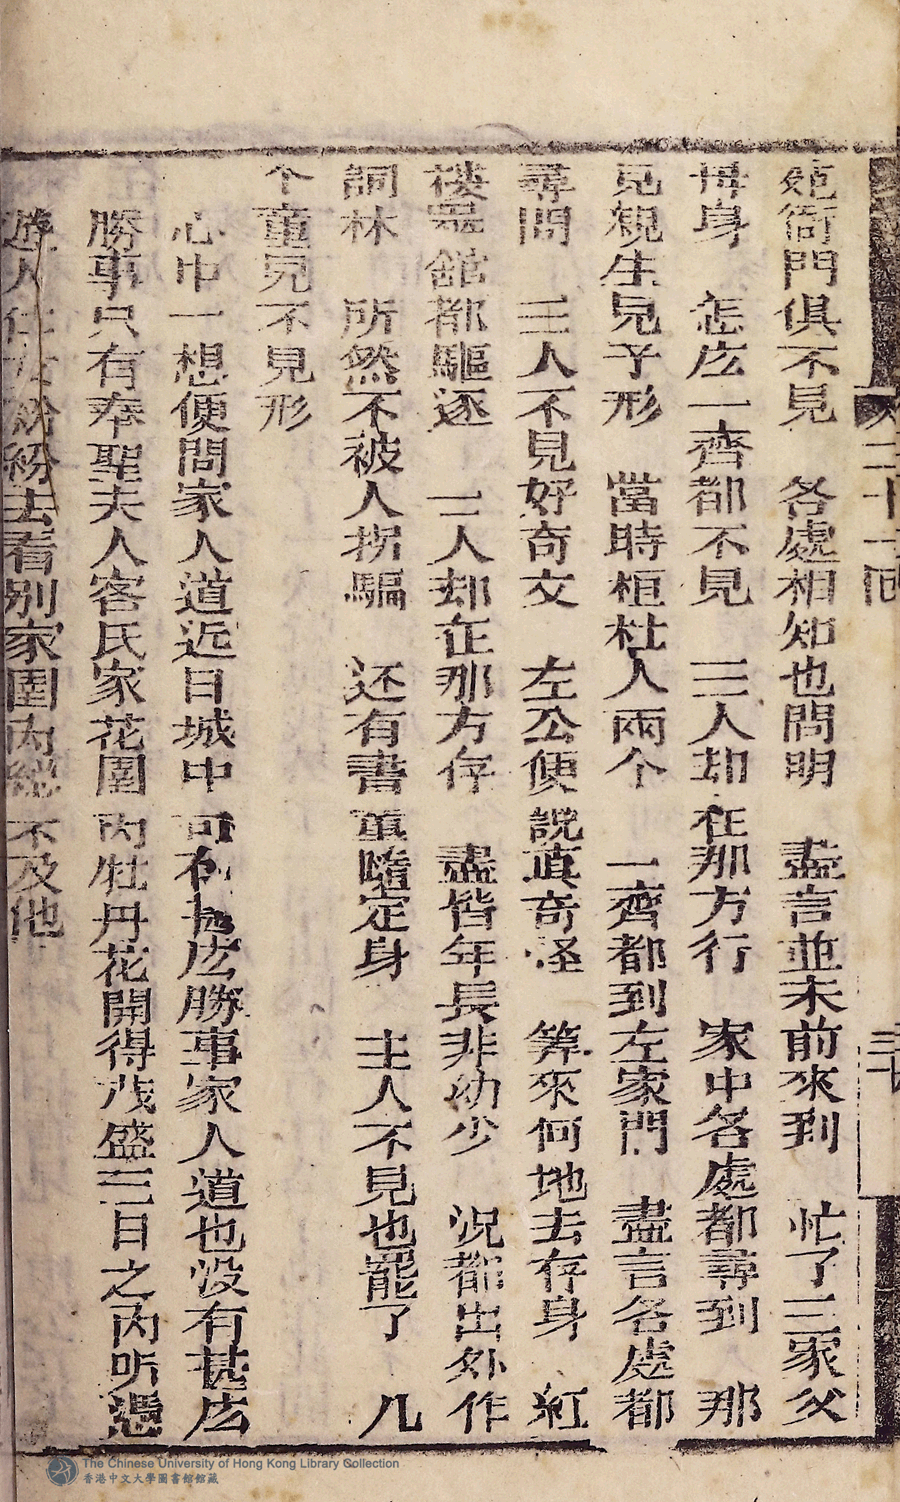 苑衙門俱不見　各處相知也問明　盡言並未前來到　忙了三家父
母身　怎庅一齊都不見　三人却在那方行　家中各處都尋到　那
見親生兒子形　當時桓杜人兩个　一齊都到左家門　盡言各處都
尋問　三人不見好奇文　左公便說真奇怪　算來何地去存身　紅
樓舘都驅逐　三人却在那方存　盡皆年長非幼少　況都出外作
詞林　所然不被人拐騙　还有書童隨定身　主人不見也罷了　几
个童兒不見形
心中一想便問家人道近日城中可有甚庅勝事家人道也沒有甚庅
勝事只有奉聖夫人客氏家花園內牡丹花開得茂盛三日之內听凴
遊人仕女紛紛去看別家園內總不及他
二十一回
三十
The Chinese University of Hong Kong Library Collection
香港中文大學圖書館館藏